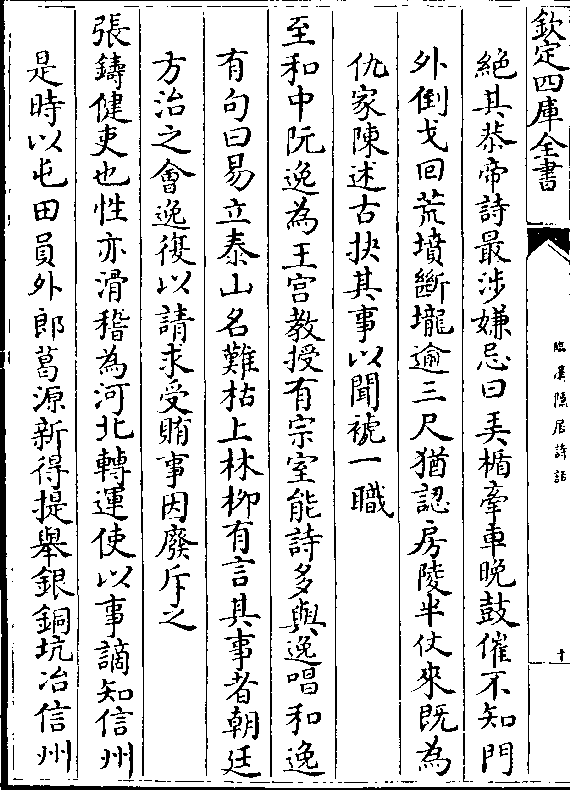 欽定四庫全書
臨漢隱居詩話
十
絕其恭帝詩最涉嫌忌曰弄楯牽車晚鼓催不知門
外倒戈回荒墳斷壠逾三尺猶認房陵半仗來既為
仇家陳述古抉其事以聞褫一職
至和中阮逸為王宮教授有宗室能詩多與逸唱和逸
有句曰易立泰山名難枯上林柳有言其事者朝廷
方治之會逸復以請求受賄事因廢斥之
張鑄健吏也性亦滑稽為河北轉運使以事謫知信州
是時以屯田員外郎葛源新得提舉銀銅坑冶信州